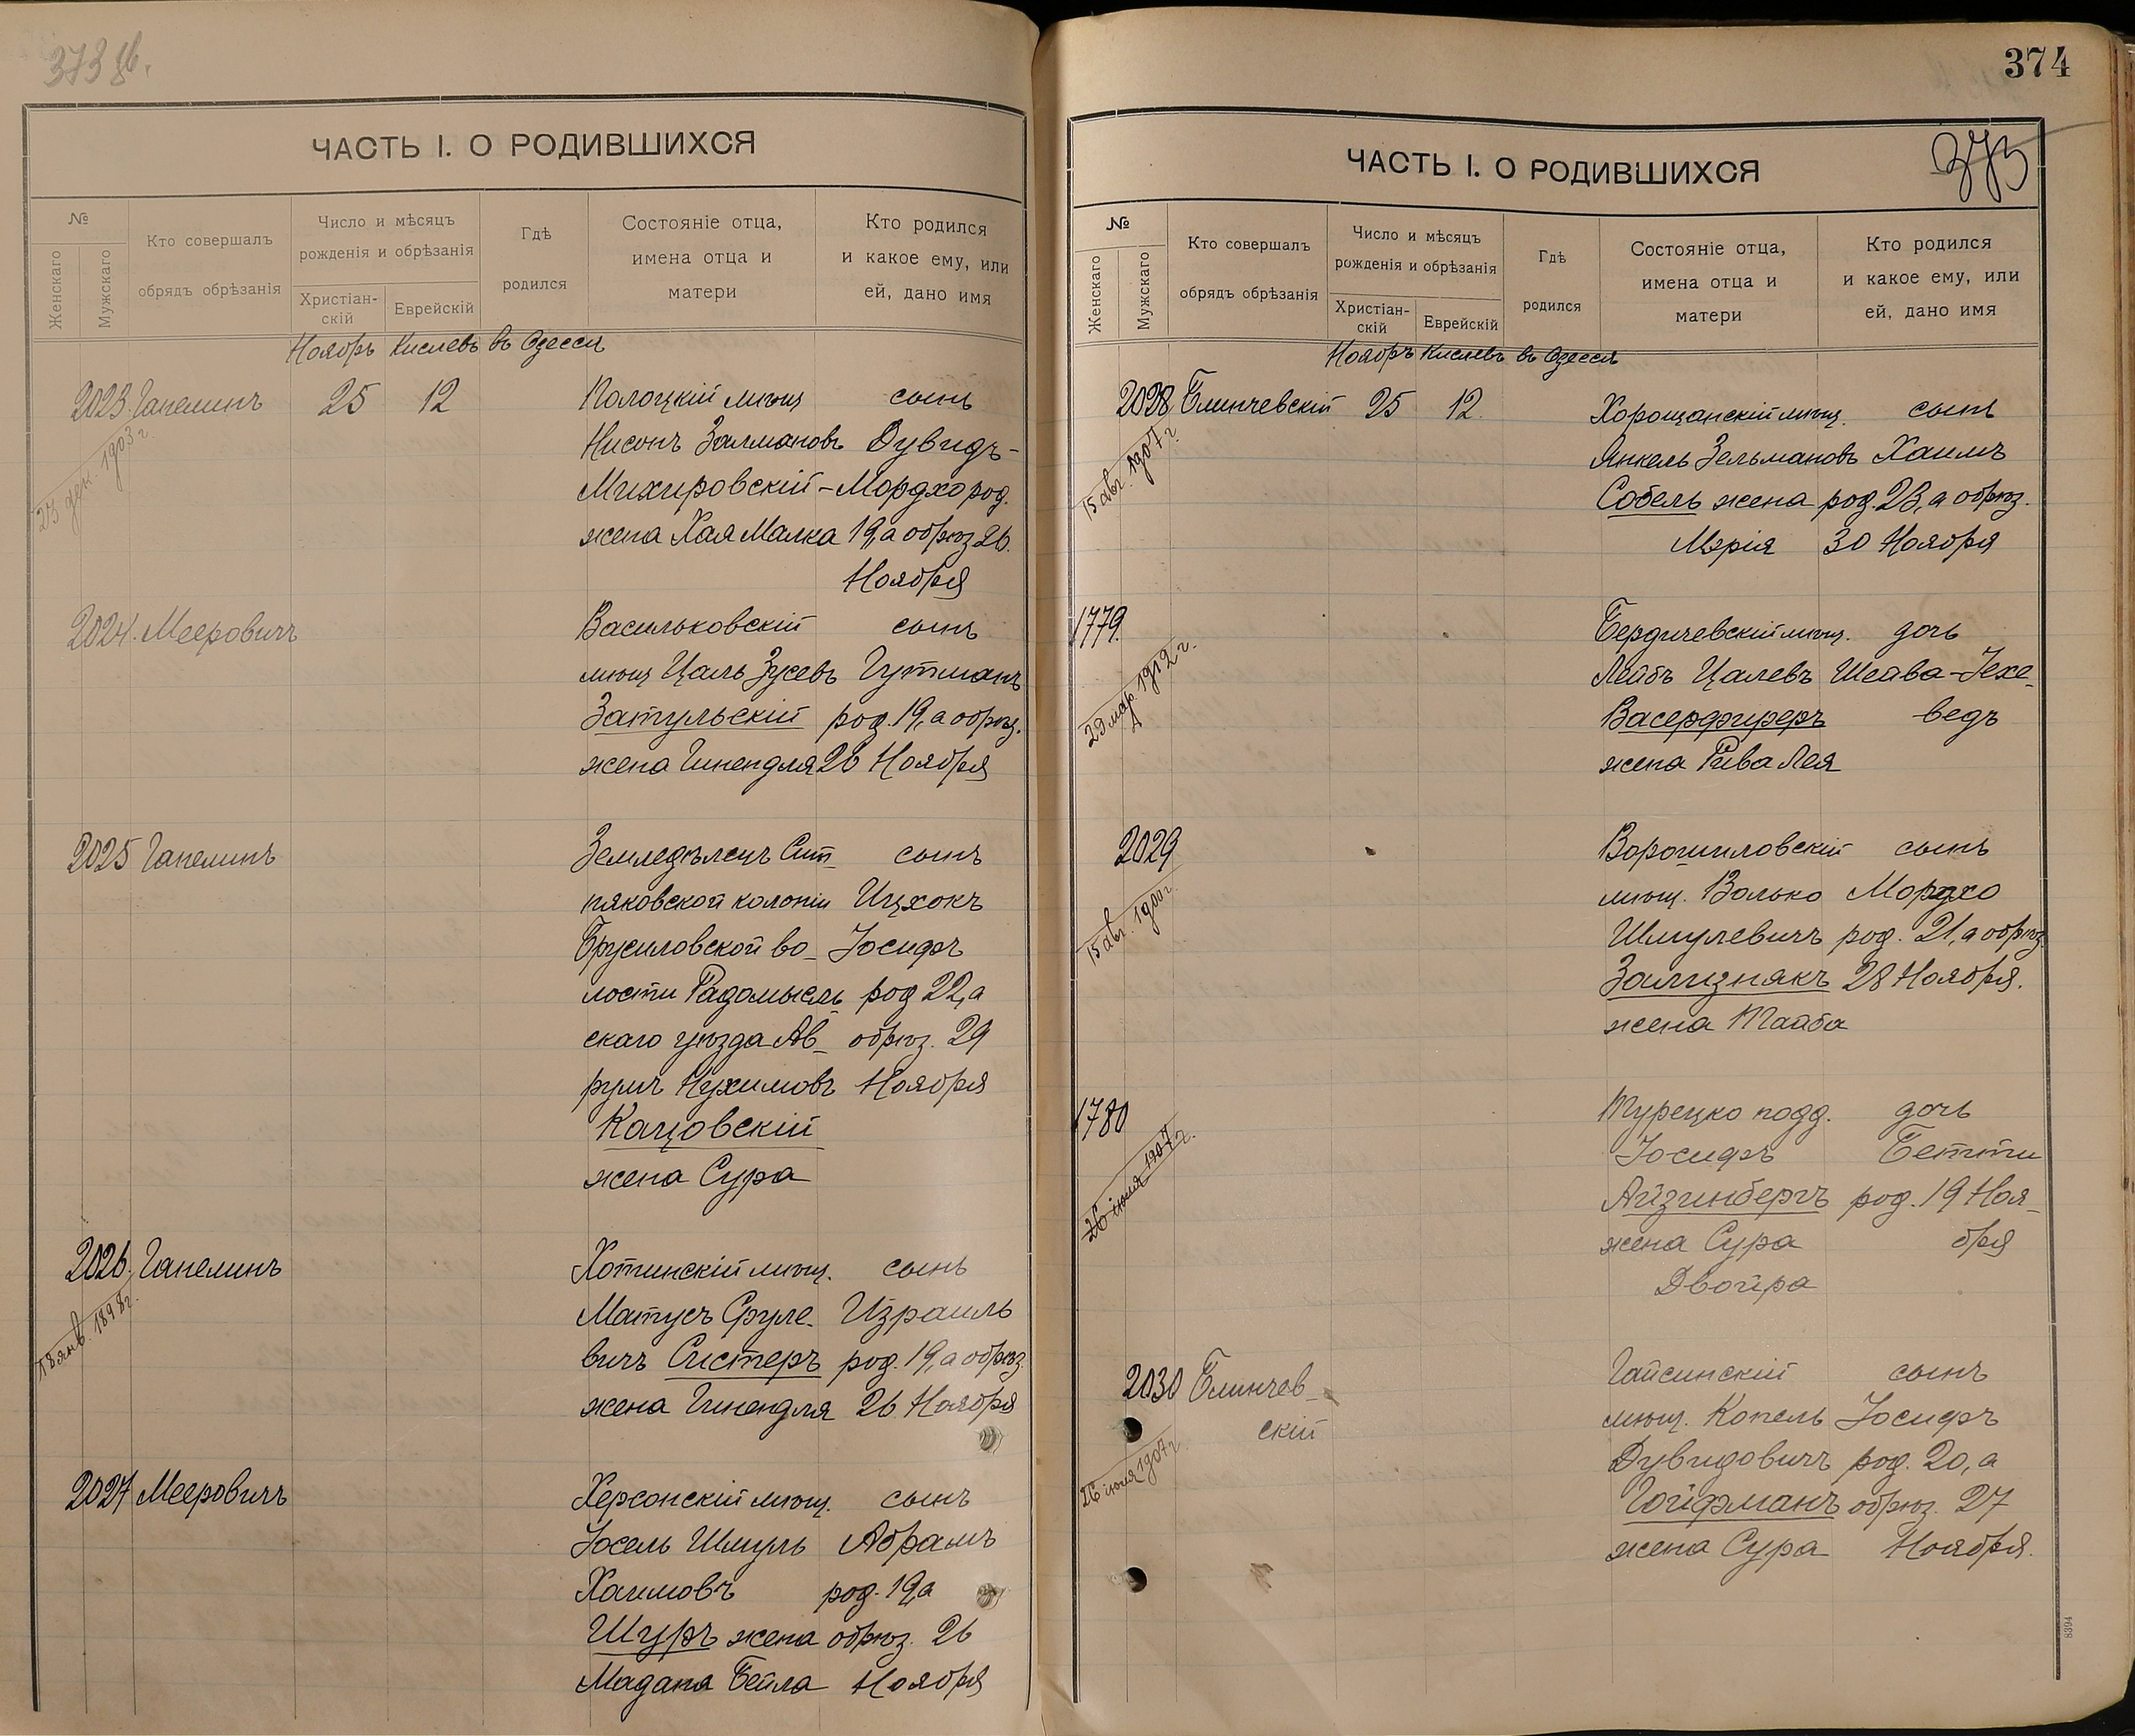 373 об.
ЧАСТЬ I. О РОДИВШИХСЯ
№
Женскаго
Мужскаго
Кто совершалъ
обрядъ обрѣзанія
Число и мѣсяцъ
рожденія и обрѣзанія
Христіан-
скій
Еврейскій
Гдѣ
родился
Состояніе отца,
имена отца и
матери
Кто родился
и какое ему, или
ей, дано имя
Ноябрь Кислевъ въ Одессѣ
2023. Гапелинъ 25 12 Полоцкій мѣщ сынъ
23 дек. 1903 г.
Нисонъ Залмановъ Дувидъ-
Михировскій - Мордхо род.
жена Хая Малка 19, а обрѣз 26.
Ноября
2024. Мееровичъ Васильковскій сынъ
мѣщ Цаль Зусевъ Гутманъ
Затульскій род. 19, а обрѣз.
жена Гинендля 26 Ноября
2025 Гапелинъ Земледѣлецъ Сит- сынъ
няковской колоніи Ицхокъ
Брусиловской во- Іосифъ
лости Радомысль- род 22, а
скаго уѣзда Ав- обрѣз. 29
румъ Нухимовъ Ноября
Кацовскій
жена Сура
2026. Гапелинъ Хотинскій мѣщ. сынъ
18 янв. 1898 г.
Матусъ Сруле- Израиль
вичъ Систеръ род. 19, а обрѣз.
жена Гинендля 26 Ноября
2027 Мееровичъ Херсонскій мѣщ. сынъ
Іосель Шмуль Абрамъ
Хаимовъ род. 19, а
Шуръ жена обрѣз. 26
Мадана Бейла Ноября
374
373
ЧАСТЬ I. О РОДИВШИХСЯ
№
Женскаго
Мужскаго
Кто совершалъ
обрядъ обрѣзанія
Число и мѣсяцъ
рожденія и обрѣзанія
Христіан-
скій
Еврейскій
Гдѣ
родился
Состояніе отца,
имена отца и
матери
Кто родился
и какое ему, или
ей, дано имя
Ноябрь Кислевъ въ Одессѣ
2028 Блинчевскій 25 12. Хорощанскій мѣщ. сынъ
15 авг. 1907 г.
Янкель Зельмановъ Хаимъ
Собель жена род. 23, а обрѣз.
Мэрія 30 Ноября
1779. Бердичевскій мѣщ. дочь
29 мар. 1912 г.
Лейбъ Цалевъ Шеава-Іехе-
Васерфиреръ ведъ
жена Рива Лея
2029 Ворошиловскій сынъ
15 авг. 1900 г.
мѣщ. Волько Мордхо
Шмулевичъ род. 21, а обрѣз
Зализнякъ 28 Ноября.
жена Тайба
1780 Турецко подд. дочь
26 іюля 1907 г.
Іосифъ Бетти
Айзинбергъ род. 19 Ноя-
жена Сура бря
Двойра
2030 Блинчев- Гайсинскій сынъ
скій мѣщ. Копель Іосифъ
26 іюля 1907 г.
Дувидовичъ род. 20, а
Гойфманъ обрѣз. 27
жена Сура Ноября.
8394